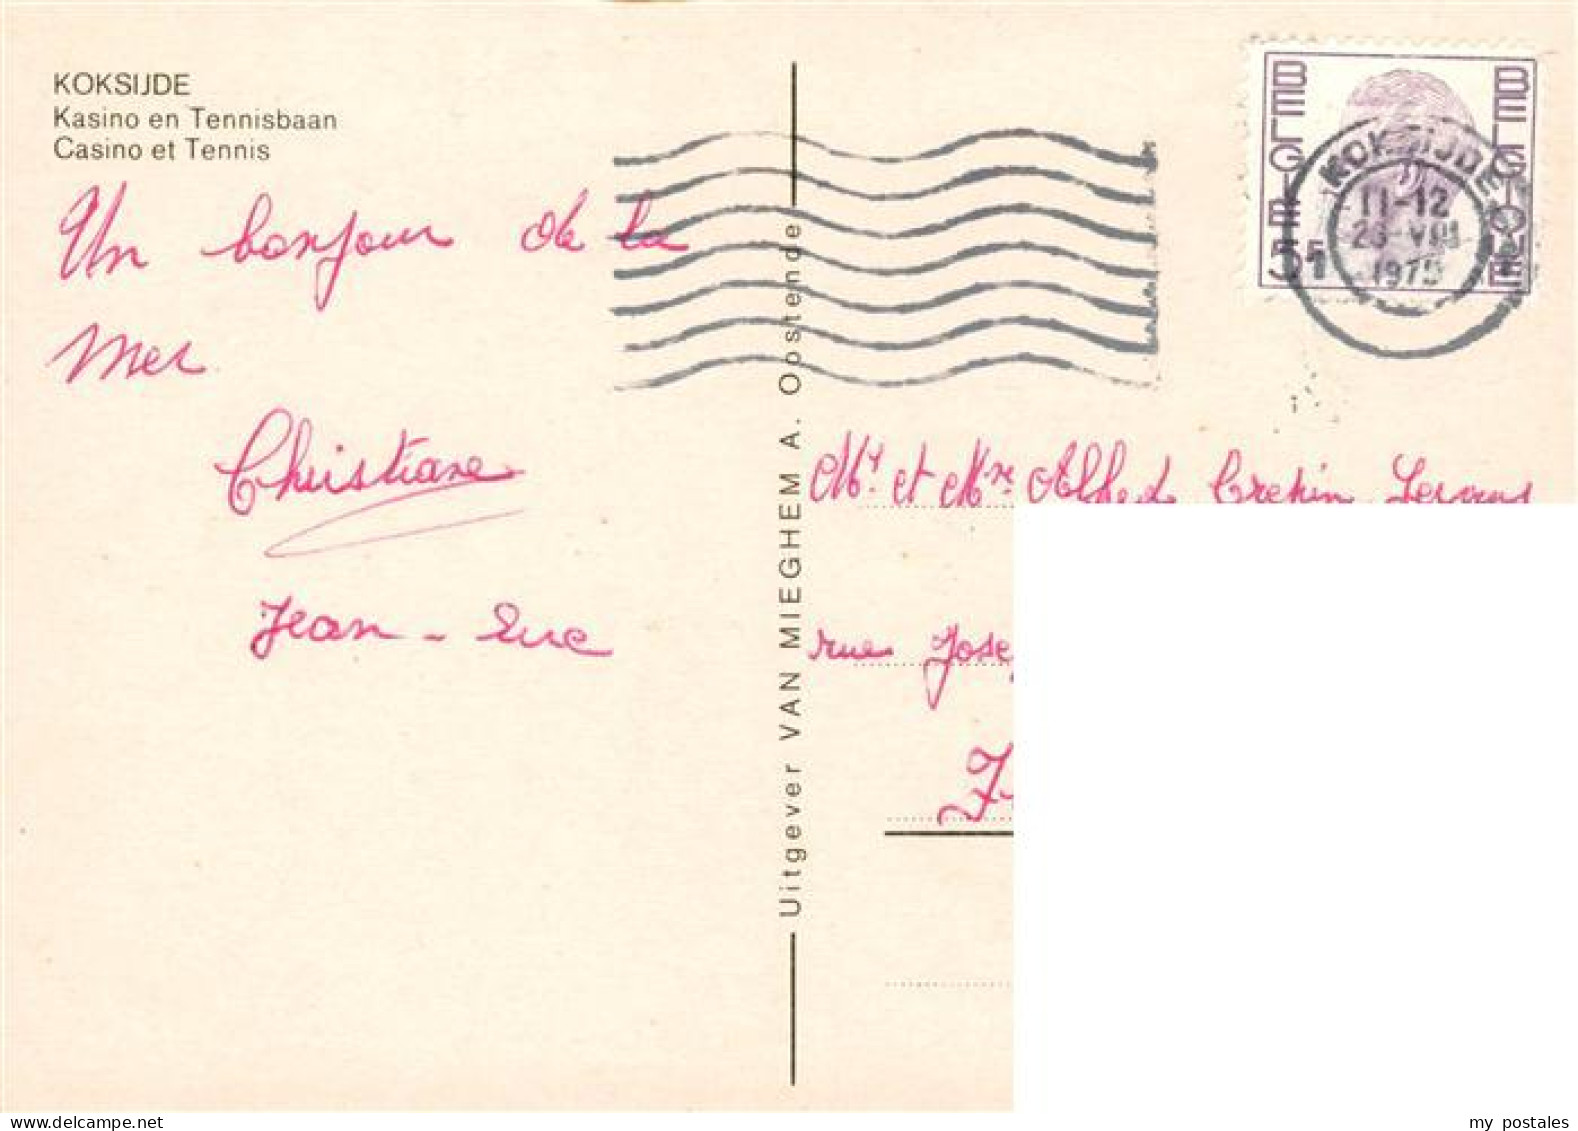 KOKSIJDE
Kasino en Tennisbaan
Casino et Tennis
Un bonjour de la
mer
Christiane
Jean-Luc
Uitgever VAN MIEGHEM A. Oostende
BELGIË
BELGIQUE
5F
KOKSIJDE
11-12
26-VIII
1975
1
Mr et Mme Alfred Crekin
rue
my postales